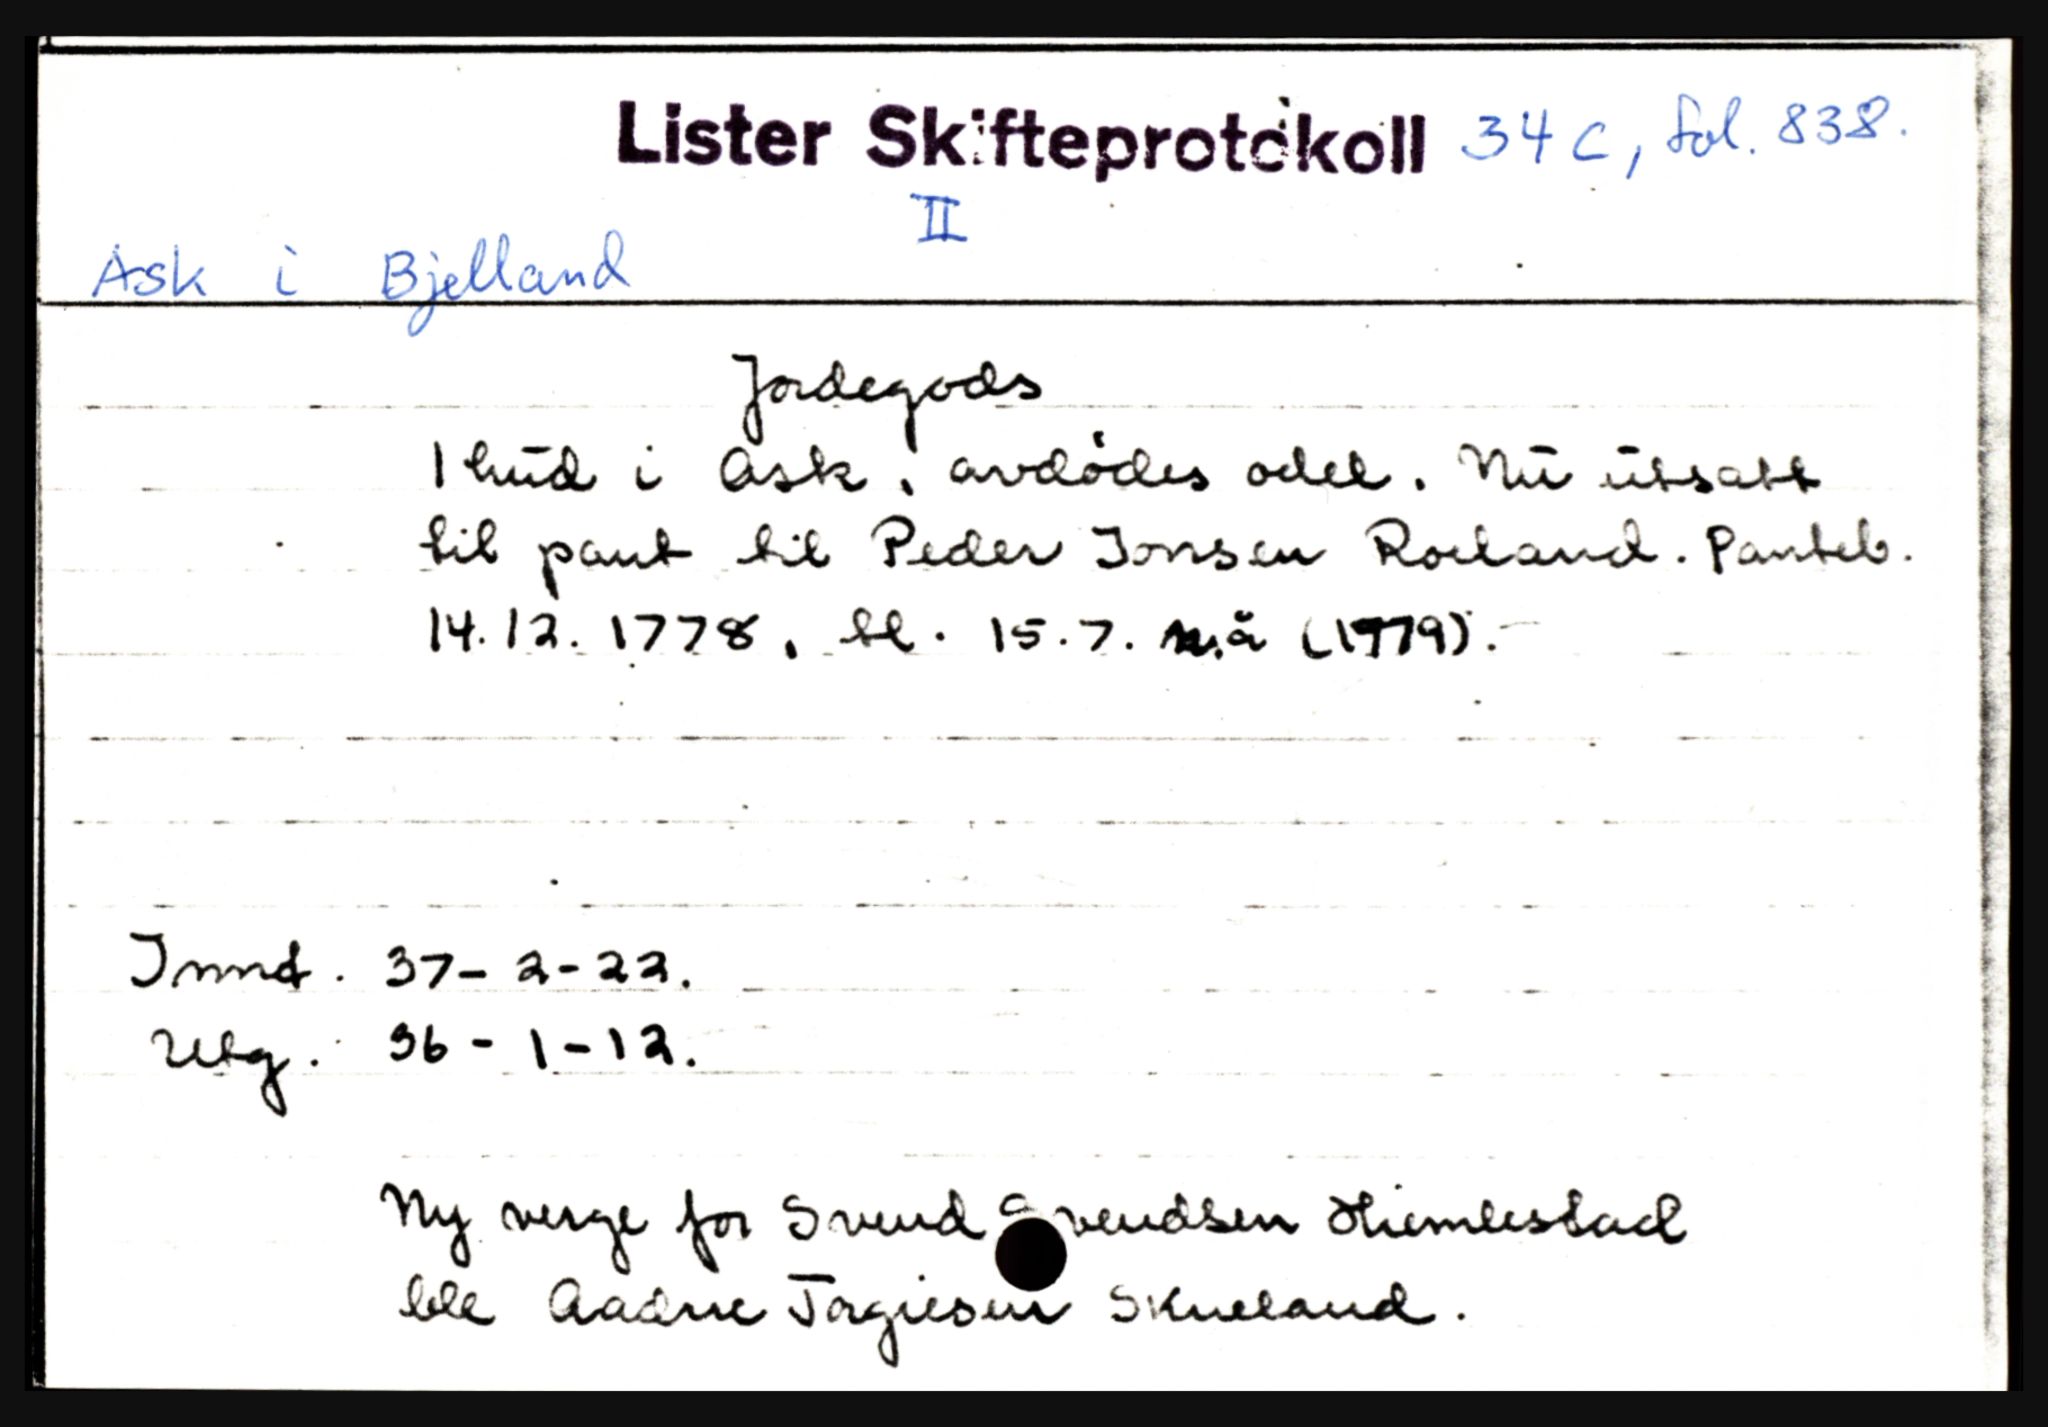 Lister Skifteprotokoll 34 c, fol. 838.
II
Ask i Bjelland
Jordegods
1 hud i Ask, avdødes odel. Nu utsatt
til pant til Peder Jonsen Roeland. Panteb.
14.12. 1778, tl. 15.7. n.å (1779).
Innt. 37-2-22.
Utg. 36-1-12.
Ny verge for Svend Svendsen Hiemlestad
ble Aadne Torgiesen Skueland.